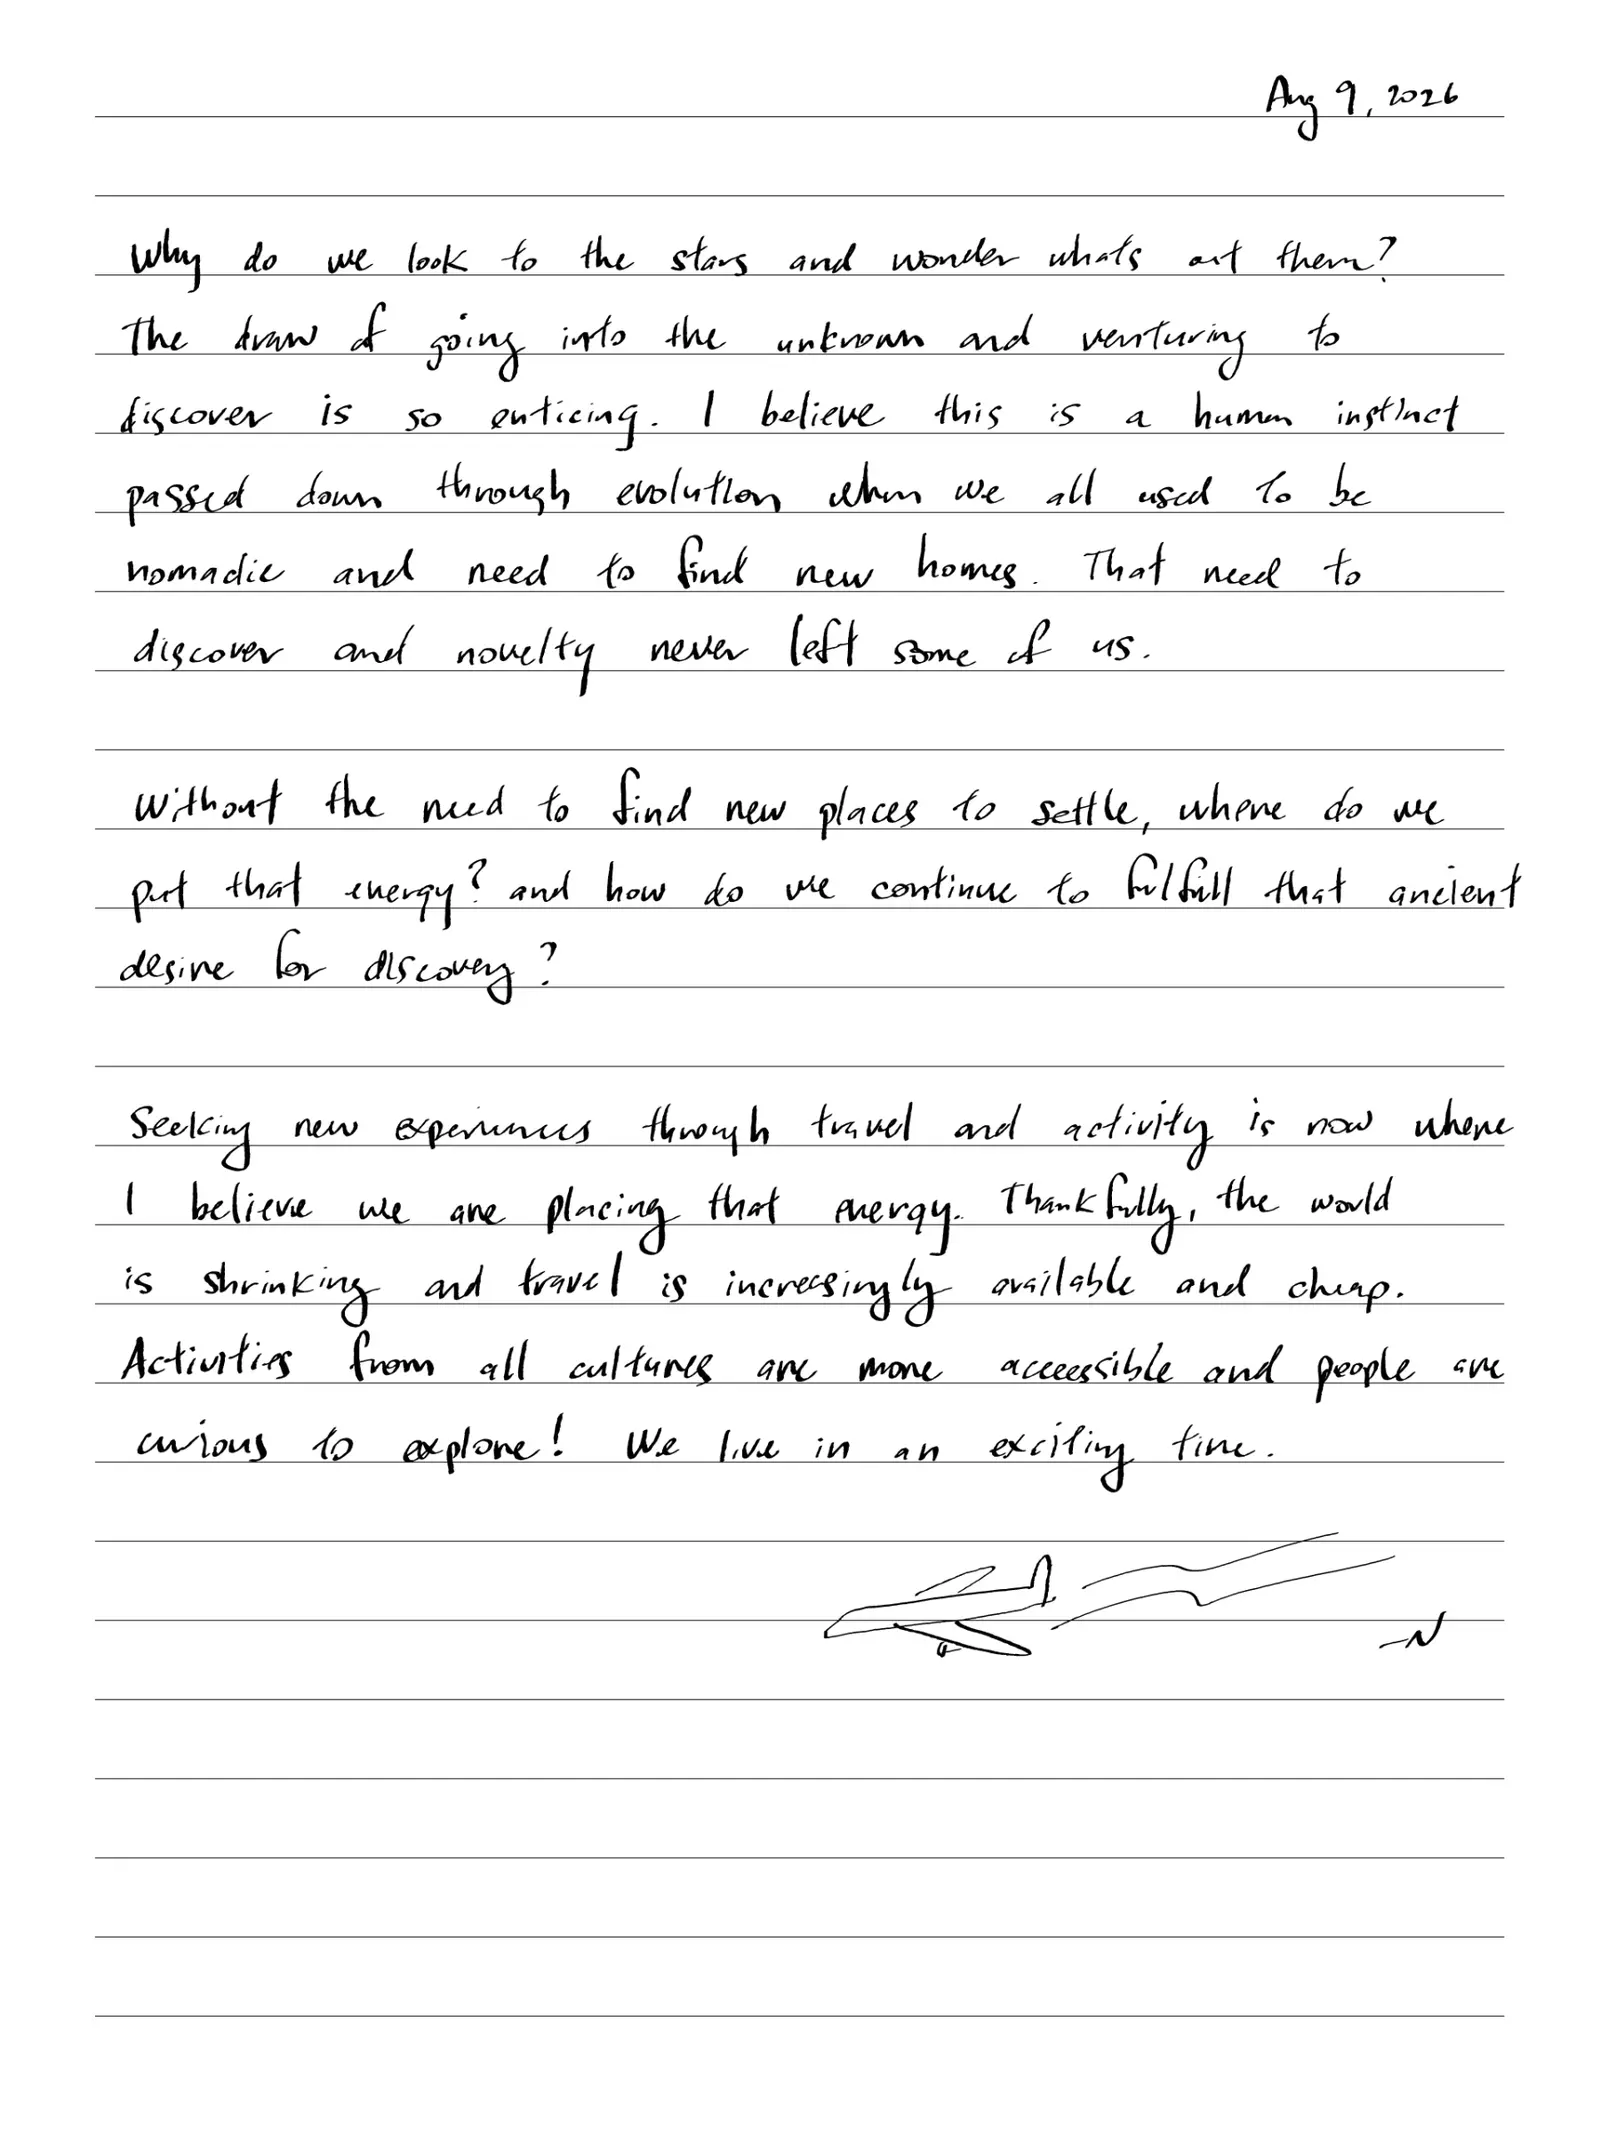 Aug 9, 2026
Why do we look to the stars and wonder whats out there?
The draw of going into the unknown and venturing to
discover is so enticing. I believe this is a human instinct
passed down through evolution when we all used to be
nomadic and need to find new homes. That need to
discover and novelty never left some of us.
Without the need to find new places to settle, where do we
put that energy? and how do we continue to fulfill that ancient
desire for discovery?
Seeking new experiences through travel and activity is now where
I believe we are placing that energy. Thankfully, the world
is shrinking and travel is increasingly available and cheap.
Activities from all cultures are more acceessible and people are
curious to explore! We live in an exciting time.
-N